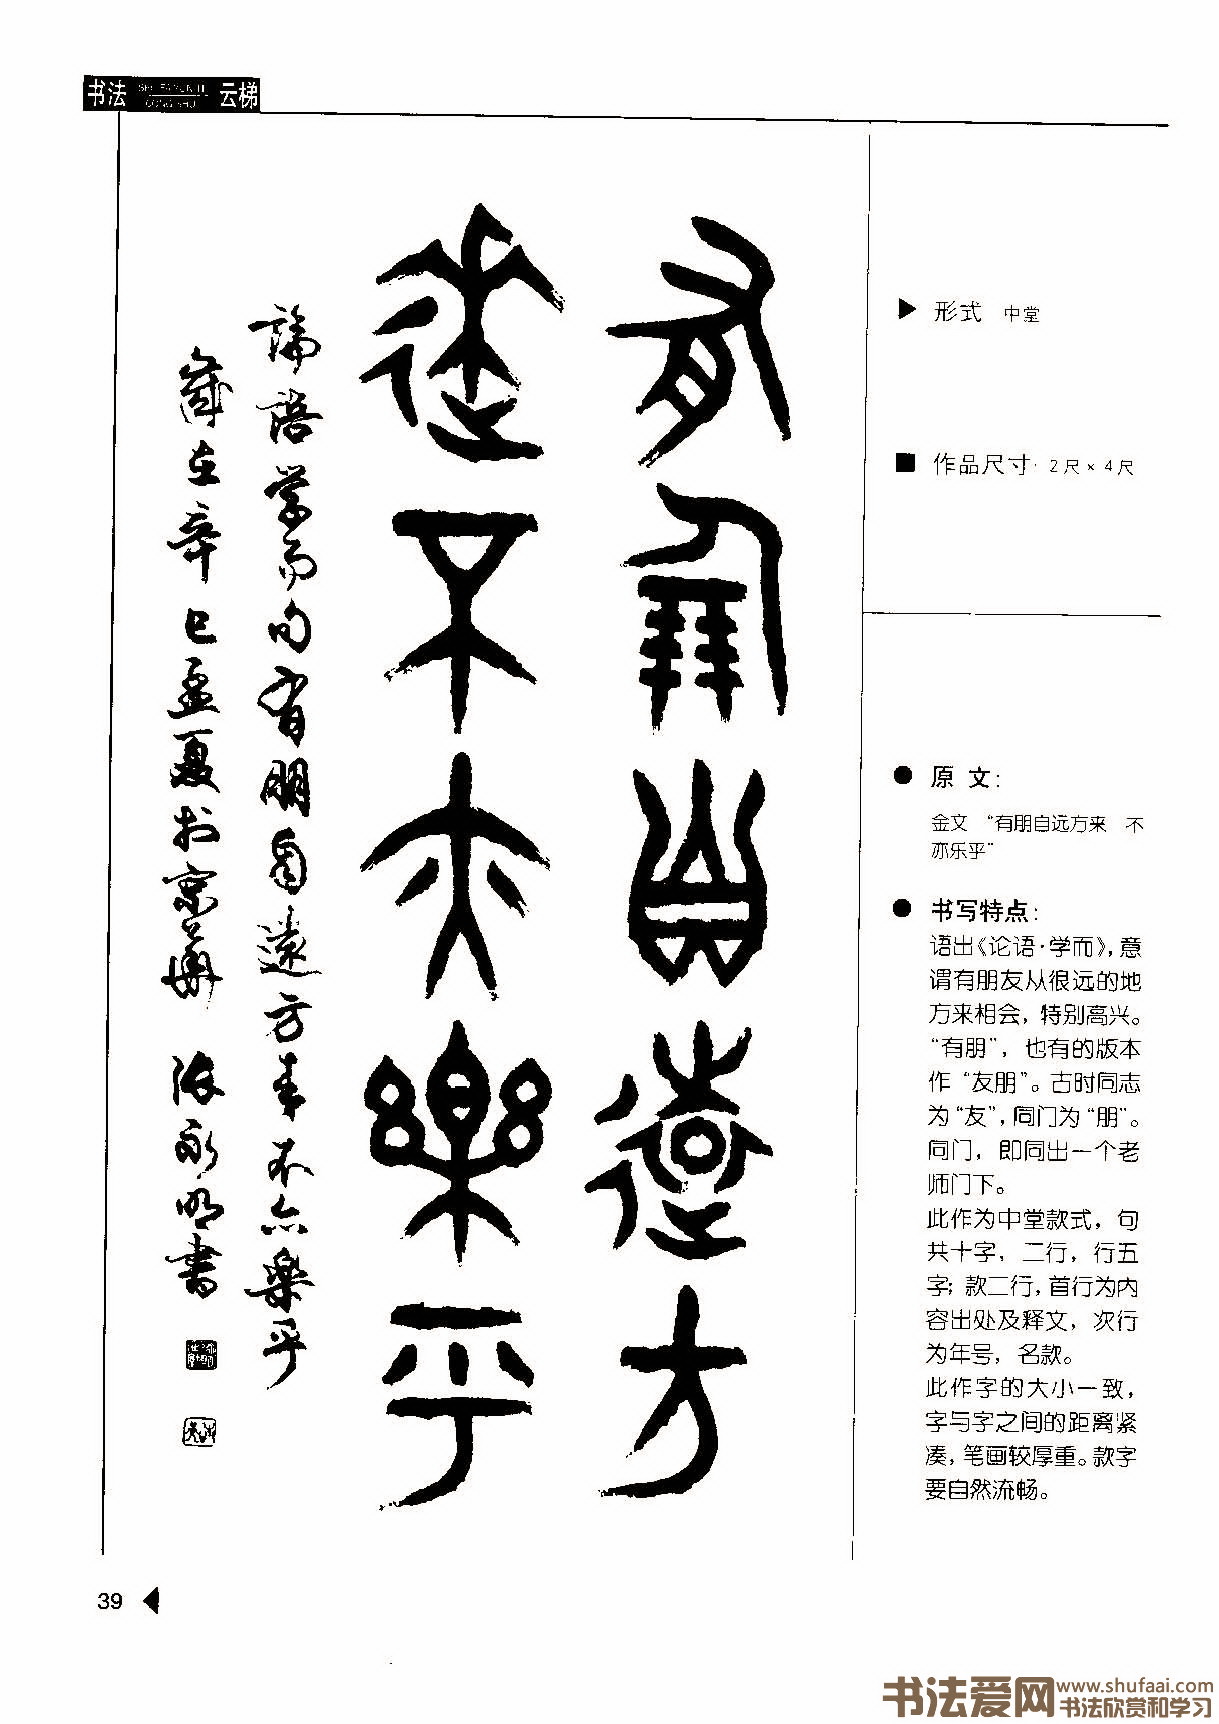 书法 SHU FA YUN TI CONG SHU 云梯
有朋自远方
来不亦樂乎
論語学而句有朋自遠方来不亦樂乎
歲在辛巳孟夏於京華 張永明書
形式 中堂
作品尺寸: 2尺×4尺
原文:
金文 “有朋自远方来 不
亦乐乎”
书写特点:
语出《论语·学而》,意
谓有朋友从很远的地
方来相会,特别高兴。
“有朋”,也有的版本
作“友朋”。古时同志
为“友”,同门为“朋”。
同门,即同出一个老
师门下。
此作为中堂款式,句
共十字,二行,行五
字;款二行,首行为内
容出处及释文,次行
为年号,名款。
此作字的大小一致,
字与字之间的距离紧
凑,笔画较厚重。款字
要自然流畅。
39
书法爱网 www.shufaai.com
书法欣赏和学习